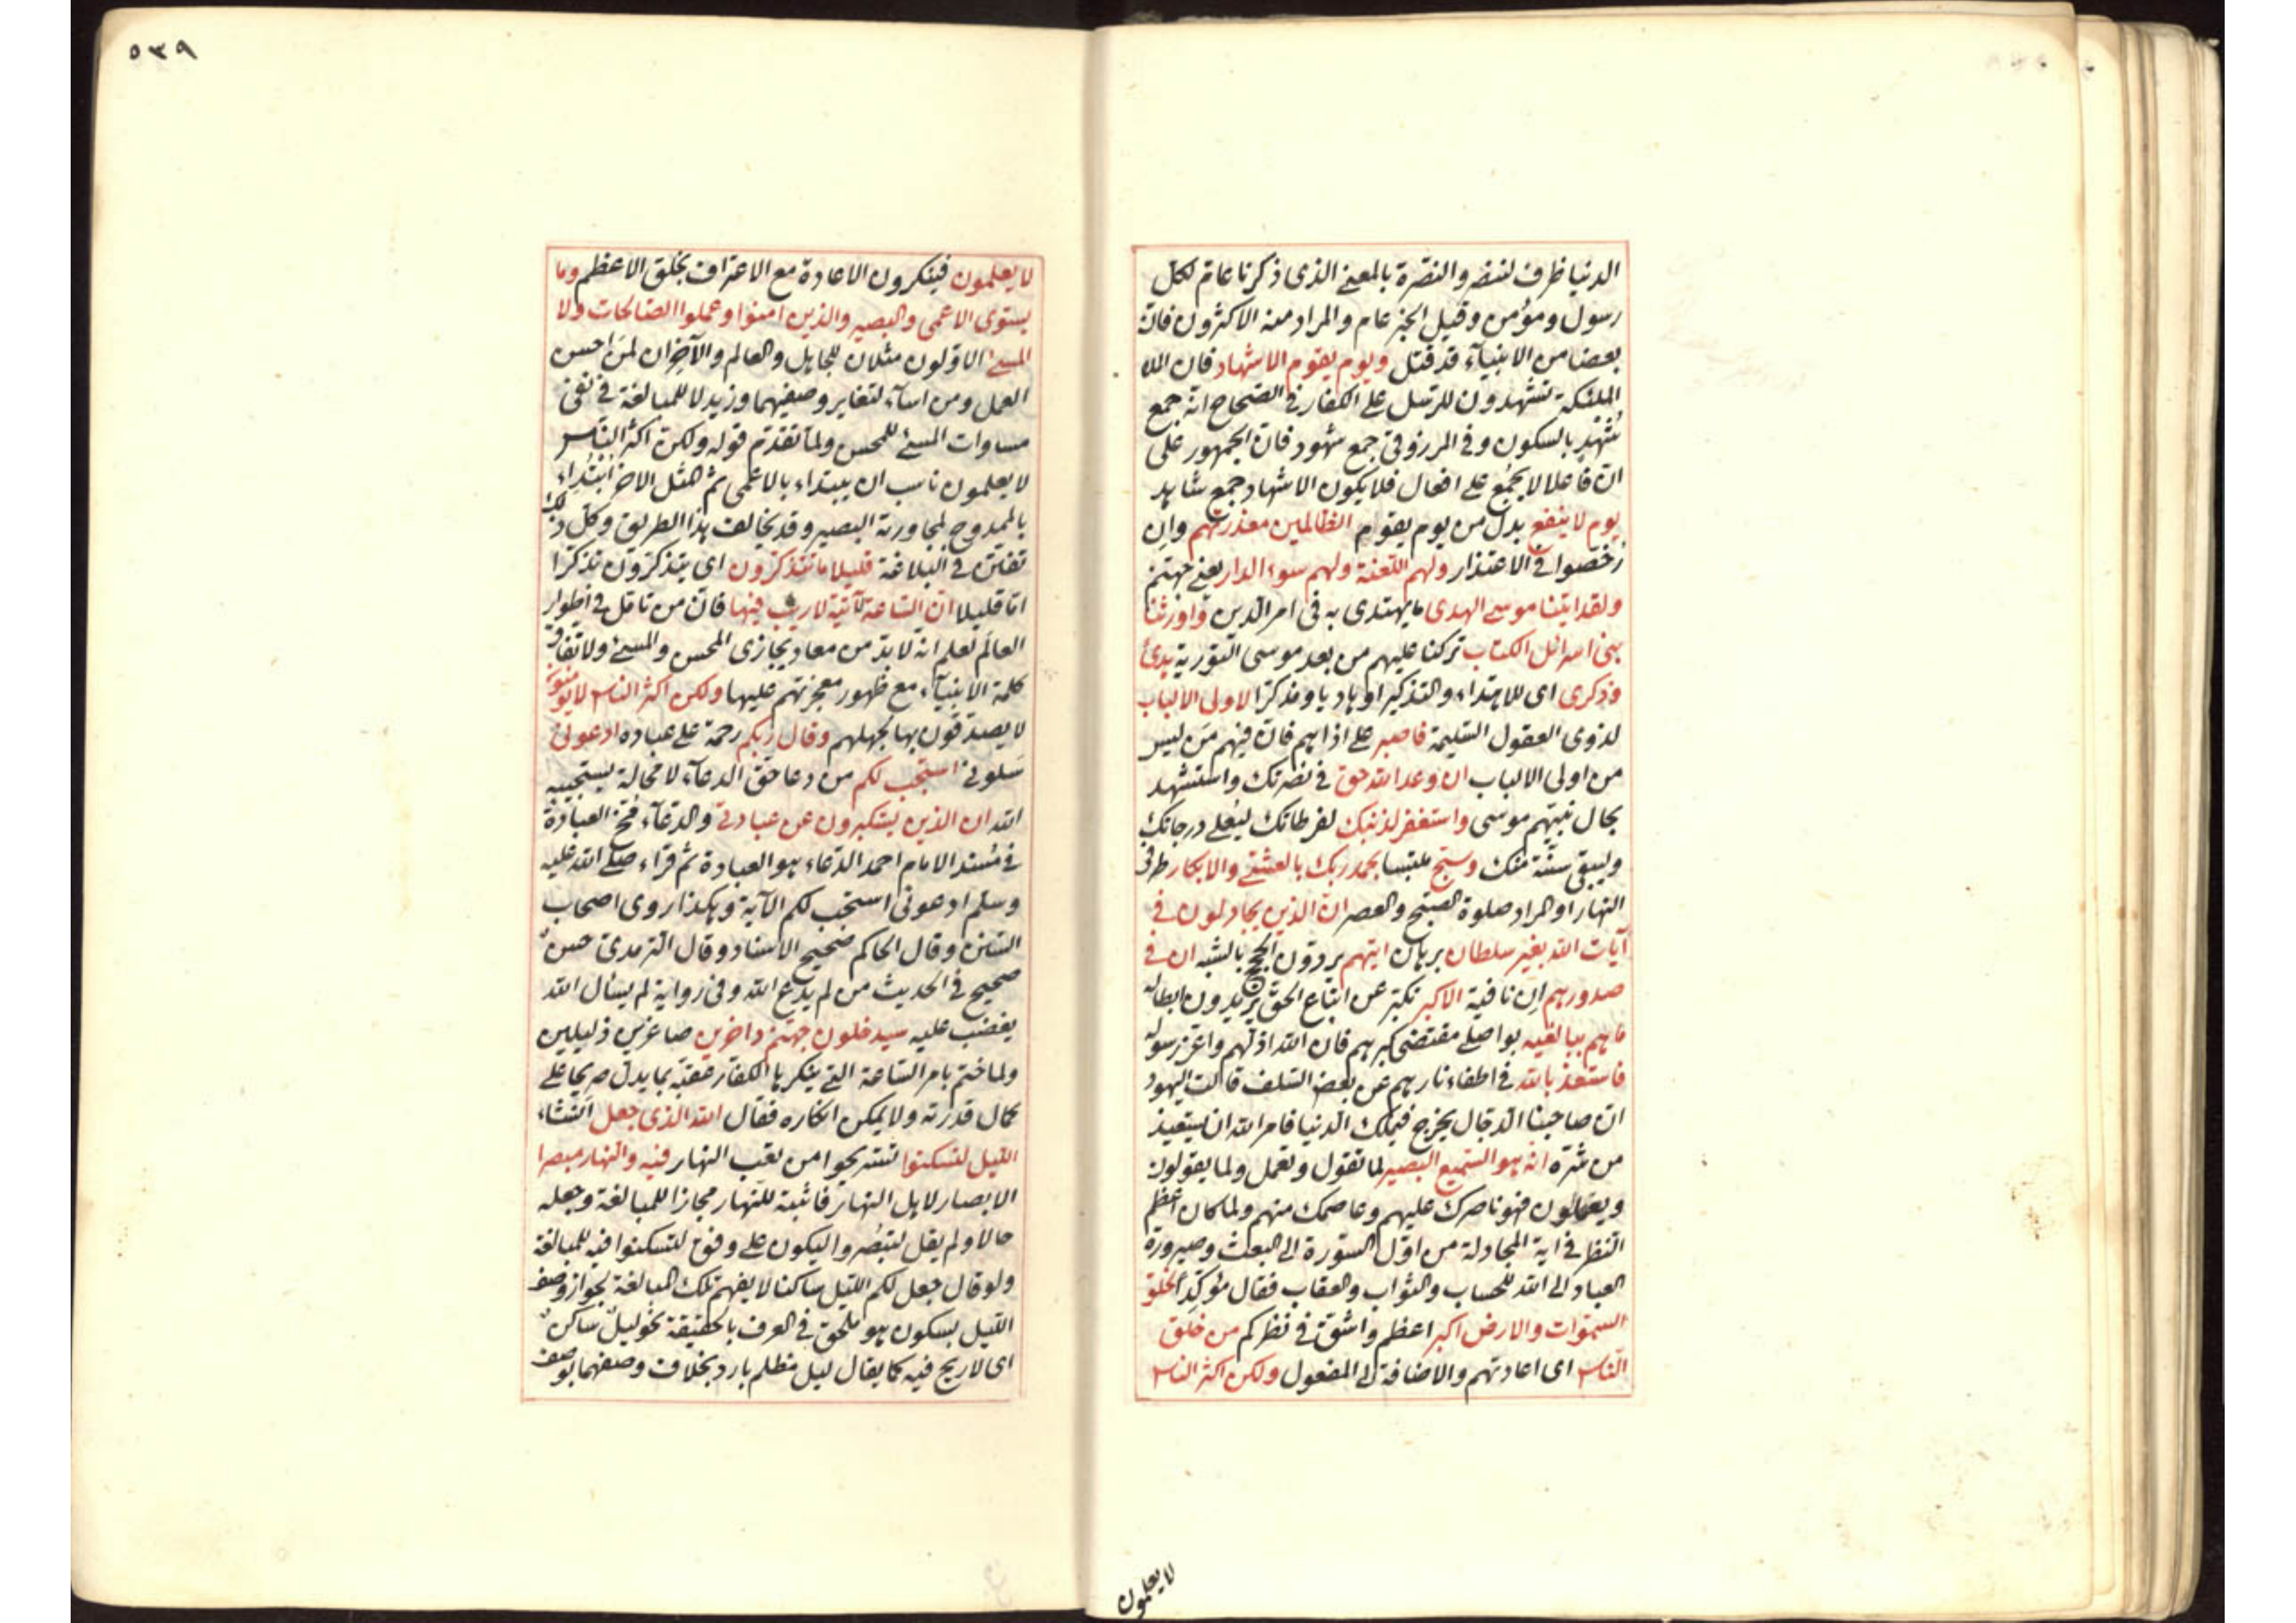 الدنيا ظرف لننصر والنصرة بالمعنى الذى ذكرنا عام لكل
رسول ومؤمن وقيل الخبر عام والمراد منه الاكثرون فان
بعضا من الانبياء قد قتل ويوم يقوم الاشهاد فان
الملئكة تشهدون للرسل على الكفار فى الصحاح انه جمع
شهد بالسكون وفى المرزوقى جمع شهود فان الجمهور على
ان فاعلا لا يجمع على افعال فلا يكون الاشهاد جمع شاهد
يوم لا ينفع بدل من يوم يقوم الظالمين معذرتهم وان
رخصوا فى الاعتذار ولهم اللعنة ولهم سوء الدار يعنى جهنم
ولقد اتينا موسى الهدى ما يهتدى به فى امر الدين واورثنا
بنى اسرائل الكتاب تركنا عليهم من بعد موسى التورية هدى
وذكرى اى للاهتداء والتذكير او هاديا ومذكرا لاولى الالباب
لذوى العقول السليمة فاصبر على اذاهم فان فيهم من ليس
من اولى الالباب ان وعد الله حق فى نصرتك واستشهد
بحال نبيهم موسى واستغفر لذنبك لفرطاتك ليعلى درجاتك
وليبقى سنة منك وسبح ملتبسا بحمد ربك بالعشى والابكار طرفى
النهار او المراد صلوة الصبح والعصر ان الذين يجادلون فى
آيات الله بغير سلطان برهان اتيهم يردون الحجج بالشبه ان فى
صدورهم ان نافية الا كبر تكبر عن اتباع الحق يريدون ابطاله
ما هم ببالغيه بواصلى مقتضى كبرهم فان الله اذلهم واعز رسوله
فاستعذ بالله فى اطفاء نارهم عن بعض السلف قالت اليهود
ان صاحبنا الدجال يخرج فيملك الدنيا فامر الله ان يستعيذ
من شره انه هو السميع البصير لما تقول وتعمل ولما يقولون
ويعملون فهو ناصرك عليهم وعاصمك منهم ولما كان اعظم
النظر فى اية المجادلة من اول السورة الى البعث وصيرورة
العباد الى الله للحساب والثواب والعقاب فقال مؤكدا لخلق
السموات والارض اكبر اعظم واشق فى نظركم من خلق
الناس اى اعادتهم والاضافة الى المفعول ولكن اكثر الناس
لا يعلمون
٥٣٩
لا يعلمون فينكرون الاعادة مع الاعتراف بخلق الاعظم وما
يستوى الاعمى والبصير والذين امنوا وعملوا الصالحات ولا
المسئ الاولون مثلان للجاهل والعالم والآخران لمن احسن
العمل ومن اساء لتغاير وصفيهما وزيد لا للمبالغة فى نفى
مساوات المسئ للمحسن ولما تقدم قوله ولكن اكثر الناس
لا يعلمون ناسب ان يبتداء بالاعمى ثم المثل الاخر ابتداء
بالممدوح لمجاورته البصير وقد يخالف هذا الطريق وكل ذلك
تفنن فى البلاغة قليلا ما تتذكرون اى يتذكرون تذكرا
قليلا ان الساعة لآتية لا ريب فيها فان من تامل فى اطوار
العالم لعلم انه لا بد من معاد يجازى المحسن والمسئ ولاتفاق
كلمة الانبياء مع ظهور معجزتهم عليها ولكن اكثر الناس لا يؤمنون
لا يصدقون بها لجهلهم وقال ربكم رحمة على عباده ادعونى
سلونى استجب لكم من دعا حق الدعاء لا محالة يستجيبه
الله ان الذين يستكبرون عن عبادتى والدعاء مخ العبادة
فى مسند الامام احمد الدعاء هو العبادة ثم قراء صلى الله عليه
وسلم ادعونى استجب لكم الآية وهكذا روى اصحاب
السنن وقال الحاكم صحيح الاسناد وقال الترمدى حسن
صحيح فى الحديث من لم يدع الله وفى رواية لم يسأل الله
يغضب عليه سيدخلون جهنم داخرين صاغرين ذليلين
ولما ختم بامر الساعة التى ينكرها الكفار عقبه بما يدل صريحا على
كمال قدرته ولا يمكن انكاره فقال الله الذى جعل انشاء
الليل لتسكنوا لتستريحوا من تعب النهار فيه والنهار مبصرا
الابصار لاهل النهار فاثبته للنهار مجازا للمبالغة وجعله
حالا ولم يقل لتبصروا ليكون على وفق لتسكنوا فيه للمبالغة
ولو قال جعل لكم الليل ساكنا لا يفهم تلك المبالغة لجواز وصف
الليل بسكون هو ملحق فى العرف بالحقيقة نحو ليل ساكن
اى لا ريح فيه كما يقال ليل مظلم بارد بخلاف وصفهما بوصف